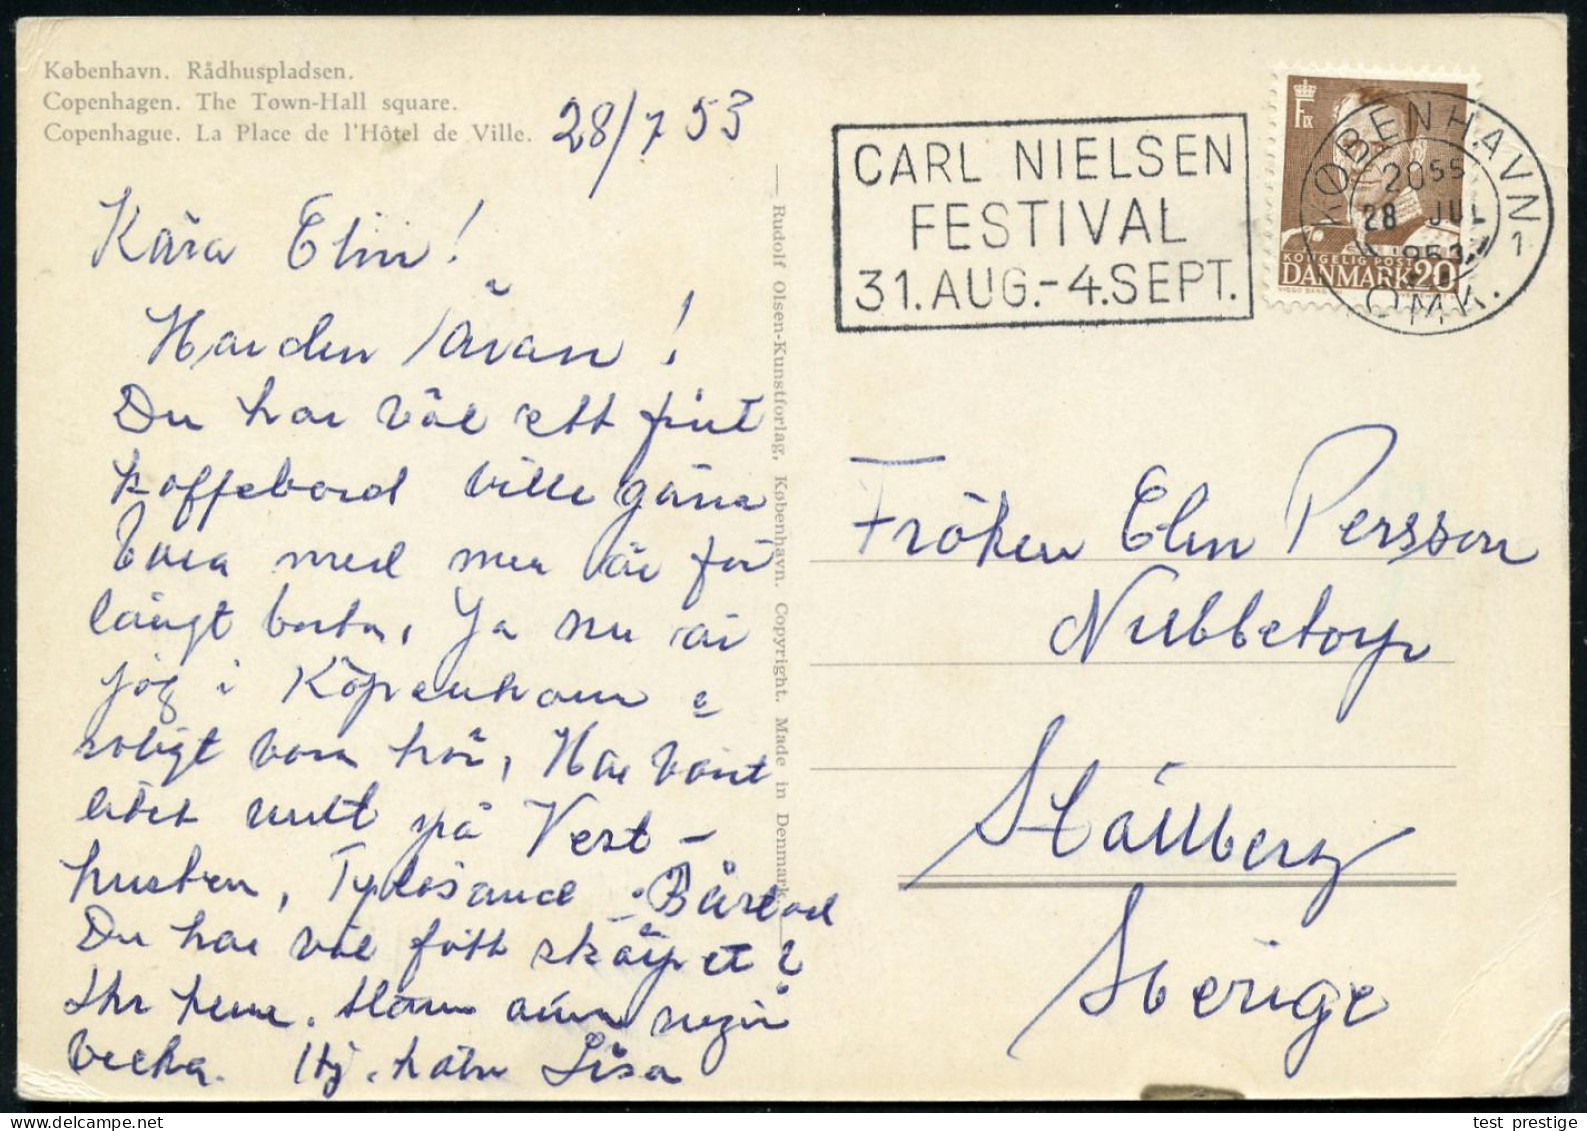 København. Rådhuspladsen.
Copenhagen. The Town-Hall square.
Copenhague. La Place de l'Hôtel de Ville.
28/7 53
Kära Elin!
Du har väl ett fint
kaffebord ville gärna
vara med men är för
långt borta, Ja nu är
jag i Köpenhamn e
roligt vara här, Har varit
litet runt på Vest-
kusten, Tylösand - Båstad
Du har väl fått skåpet?
hem. något
vecka. Hj. häln Lisa
Rudolf Olsen-Kunstforlag, København. Copyright. Made in Denmark.
CARL NIELSEN
FESTIVAL
31. AUG.-4.SEPT.
F IX
KONGELIG POST
DANMARK 20
KØBENHAVN
20 55
28 JUL
1953
OMK.
1
Fröken Elin Persson
Nubbetorp
Stållberg
Sverige
test_prestige